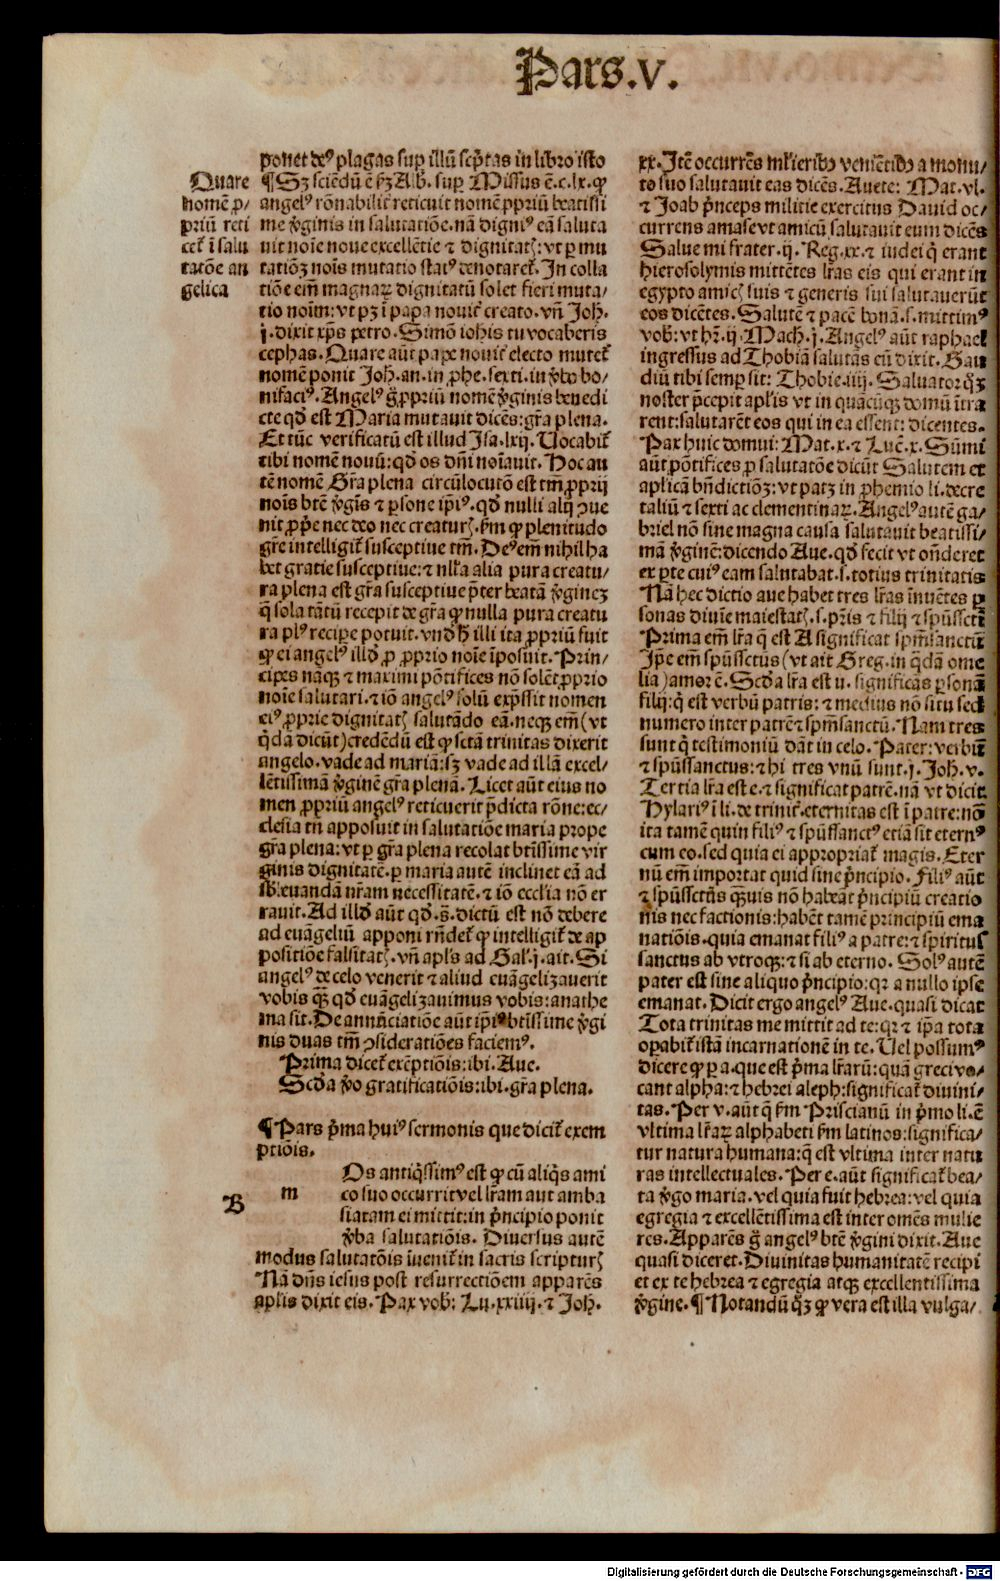 Pars.V.
Quare
nomē ꝓ/
priū reti
cet᷑ ī salu
tatōe an
gelica
ponet deꝰ plagas suꝑ illū scp̄tas in libro isto
¶ Sꝫ sciēdū ē ẜꝫ Alb̄. suꝑ Missus ē.c.lx. ꝙ
angelꝰ rōnabilit᷑ reticuit nomē ꝓpriū beatissi
me v̄ginis in salutatiōe.nā digniꝰ eā saluta
uit noīe noue excellētie ⁊ dignitatꝭ: vt ꝑ mu
tatiōꝫ noīs mutatio statꝰ denotaret᷑. In colla
tiōe em̄ magnaꝝ dignitatū solet fieri muta/
tio noīm: vt pꝫ ī papa nouit᷑ creato. vn̄ Joh̄.
j. dixit xp̄s petro. Simō iohis tu vocaberis
cephas. Quare aūt pape nouit᷑ electo mutet᷑
nomē ponit Joh̄. an. in ꝓhe. sexti. in v̄bo bo/
nifaciꝰ. Angelꝰ g̊ ꝓpriū nomē v̄ginis benedi
cte qd̄ est Maria mutauit dicēs: gr̄a plena.
Et tūc verificatū est illud Isa. lxij. Uocabit᷑
tibi nomē nouū: qd̄ os dn̄i noīauit. Hoc au
tē nomē Gr̄a plena circūlocutō est tm̄ ꝓprij
noīs btē v̄gīs ⁊ ꝑsone ip̄iꝰ. qd̄ nulli alij ꝯue
nit ꝓp̄e nec deo nec creaturꝭ. ẜm ꝙ plenitudo
gr̄e intelligit᷑ susceptiue tm̄. Deꝰ em̄ nihil ha
bet gratie susceptiue: ⁊ nll̄a alia pura creatu/
ra plena est gr̄a susceptiue p̄ter beatā v̄ginēꝫ
q̄ sola tātū recepit de gr̄a ꝙ nulla pura creatu
ra plꝰ recipe potuit. vnd̄ h̄ illi ita ꝓpriū fuit
ꝙ ei angelꝰ illd̄ ꝓ ꝓprio noīe īposuit. Prin/
cipes nāqꝫ ⁊ maximi pōtifices nō solēt ꝓprio
noīe salutari. ⁊ iō angelꝰ solū exp̄ssit nomen
eiꝰ ꝓprie dignitatꝭ salutādo eā. neqꝫ em̄ (vt
q̇dā dicūt) credēdū est ꝙ sctā trinitas dixerit
angelo. vade ad mariā: sꝫ vade ad illā excel/
lētissimā v̄ginē gr̄a plenā. Licet aūt eius no
men ꝓpriū angelꝰ reticuerit p̄dicta rōne: ec/
clesia tn̄ apposuit in salutatiōe maria prope
gr̄a plena: vt ꝑ gr̄a plena recolat btīssime vir
ginis dignitatē. ꝑ maria autē inclinet eā ad
sb̄leuandā nr̄am necessitatē. ⁊ iō ecclīa nō er
rauit. Ad illd̄ aūt qd̄ .s̄. dictū est nō debere
ad euāgeliū apponi rn̄det᷑ ꝙ intelligit᷑ de ap
positiōe falsitatꝭ. vn̄ apl̄s ad Gal̄. j. ait. Si
angelꝰ de celo venerit ⁊ aliud euāgelizauerit
vobis qꝫ̄ qd̄ euāgelizauimus vobis: anathe
ma sit. De annūciatiōe aūt ip̄iꝰ btīssime v̄gi
nis duas tm̄ ꝯsideratiōes faciemꝰ.
Prima dicet᷑ exēptiōis: ibi. Aue.
Scd̄a v̄o gratificatiōis: ibi. gr̄a plena.
¶ Pars p̄ma huiꝰ sermonis que dicit᷑ exem
ptiōis.
B
m
Os antiq̇ssimꝰ est ꝙ cū aliq̇s ami
co suo occurrit vel lr̄am aut amba
siatam ei mittit: in p̄ncipio ponit
v̄ba salutatiōis. Diuersus autē
modus salutatōis īuenit᷑ in sacris scripturꝭ
Nā dn̄s iesus post resurrectiōem apparēs
apl̄is dixit eis. Pax vob̄: Lu. xxiiij. ⁊ Joh̄.
xx. Itē occurrēs ml̄ierib⁹ veniētib⁹ a monu/
to suo salutauit eas dicēs. Auete: Mat. vl.
⁊ Joab p̄nceps militie exercitus Dauid oc/
currens amase vt amicū salutauit eum dicēs
Salue mi frater. ij. Reg. xx. ⁊ iudei q̇ erant
hierosolymis mittētes lr̄as eis qui erant in
egypto amicꝭ suis ⁊ generis sui salutauerūt
eos dicētes. Salutē ⁊ pacē bonā .s. mittimꝰ
vob̄: vt hr̄. ij. Mach. j. Angelꝰ aūt raphael
ingressus ad Thobiā salutās eū dixit. Gau
diū tibi semꝑ sit: Thobie. iiij. Saluator qꝫ̄
noster p̄cepit apl̄is vt in quācūqꝫ domū ītra
rent: salutarēt eos qui in ea essent: dicentes.
Pax huic domui: Mat. x. ⁊ Luē. x. Sūmi
aūt pōtifices ꝓ salutatōe dicūt Salutem et
aplicā bn̄dictiōꝫ: vt patꝫ in ꝓhemio li. decre
taliū ⁊ sexti ac clementinaꝝ. Angelꝰ autē ga/
briel nō sine magna causa salutauit beatissi/
mā v̄ginē: dicendo Aue. qd̄ fecit vt on̄deret
ex ꝑte cuiꝰ eam salutabat .s. totius trinitatis
Nā hec dictio aue habet tres lr̄as īnuētes ꝑ
sonas diuīe maiestatꝭ .s. pr̄is ⁊ filij ⁊ spūssctī
Prima em̄ lr̄a q̄ est A significat spm̄sanctū
Ip̄e em̄ spūssctūs (vt ait Greg. in q̇dā ome
lia) amor ē. Scd̄a lr̄a est u. significās ꝑsonā
filij: q̇ est verbū patris: ⁊ medius nō situ sed
numero inter patrē ⁊ spm̄sanctū. Nam tres
sunt q̇ testimoniū dāt in celo. Pater: verbū
⁊ spūssanctus: ⁊ hi tres vnū sunt. j. Joh̄. v.
Tertia lr̄a est e. ⁊ significat patrē. nā vt dicit
Hylariꝰ ī li. de trinit᷑. eternitas est ī patre: nō
ita tamē quin filiꝰ ⁊ spūssanctꝰ etiā sit eternꝰ
cum eo. sed quia ei appropriat᷑ magis. Eter
nū em̄ importat quid sine p̄ncipio. Filiꝰ aūt
⁊ spūssctūs qꝫ̄uis nō habeāt p̄ncipiū creatio
nis nec factionis: habēt tamē principiū ema
natiōis. quia emanat filiꝰ a patre: ⁊ spiritus
sanctus ab vtroqꝫ: ⁊ si ab eterno. Solꝰ autē
pater est sine aliquo p̄ncipio: qr a nullo ipse
emanat. Dicit ergo angelꝰ Aue. quasi dicat
Tota trinitas me mittit ad te: qr ⁊ ip̄a tota
oꝑabit᷑ istā incarnationē in te. Uel possumꝰ
dicere ꝙ ꝑ a. que est p̄ma lr̄arū: quā greci vo/
cant alpha: ⁊ hebrei aleph: significat᷑ diuini/
tas. Per v. aūt q̄ ẜm Priscianū in p̄mo li. ē
vltima lr̄aꝝ alphabeti ẜm latinos: significa/
tur natura humana: q̄ est vltima inter natu
ras intellectuales. Per e. aūt significat᷑ bea/
ta v̄go maria. vel quia fuit hebrea: vel quia
egregia ⁊ excellētissima est inter omēs mulie
res. Apparēs g̊ angelꝰ btē v̄gini dixit. Aue
quasi diceret. Diuinitas humanitatē recipi
et ex te hebrea ⁊ egregia atqꝫ excellentissima
v̄gine. ¶ Notandū qꝫ̄ ꝙ vera est illa vulga/
Digitalisierung gefördert durch die Deutsche Forschungsgemeinschaft - DFG